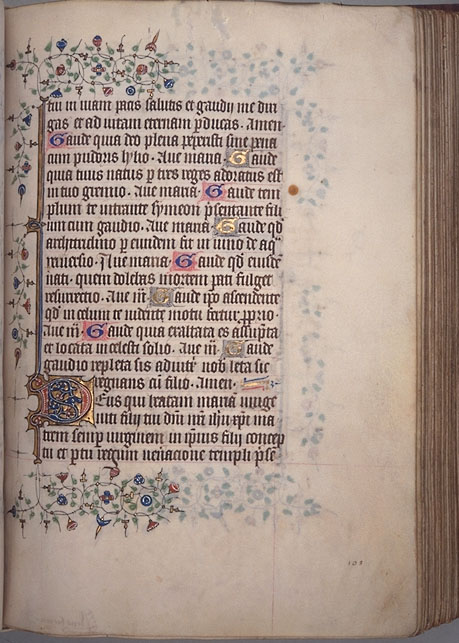 tui in viam pacis salutis et gaudij me diri
gas et ad vitam eternam p̱ducas. Amen.
Gaude quia deo plena peperisti sine pena
cum pudoris lylio. Aue maria. Gaude
quia tuus natus p̱ tres reges adoratus est
in tuo gremio. Aue maria. Gaude tem
plum te intrante symeon p̱ filii
um cum gaudio. Aue maria. Gaude qd̄
architriclino p̱ eundem fit in vino de aq̄
Aue maria. Gaude qd̄ eiusdē
nati quem dolebas mortem pati fulget
resurrectio. Aue m̄ Gaude xp̄o ascendente
qd̄ in celum te vidente motu fertur p̱rio
Aue m̄ Gaude quia exaltata es assūpta
et locata in celesti solio. Aue m̄ Gaude
gaudio repleta sis aduīte nob̄ leta sic
regnans cū filio. Amen.
Deus qui beatam mariā virgi
filij tui dn̄i nr̄i ih̄u xp̄i ma
trem semp̱ virginem in ip̄ius filij concep
tu et p̱tu templi
108